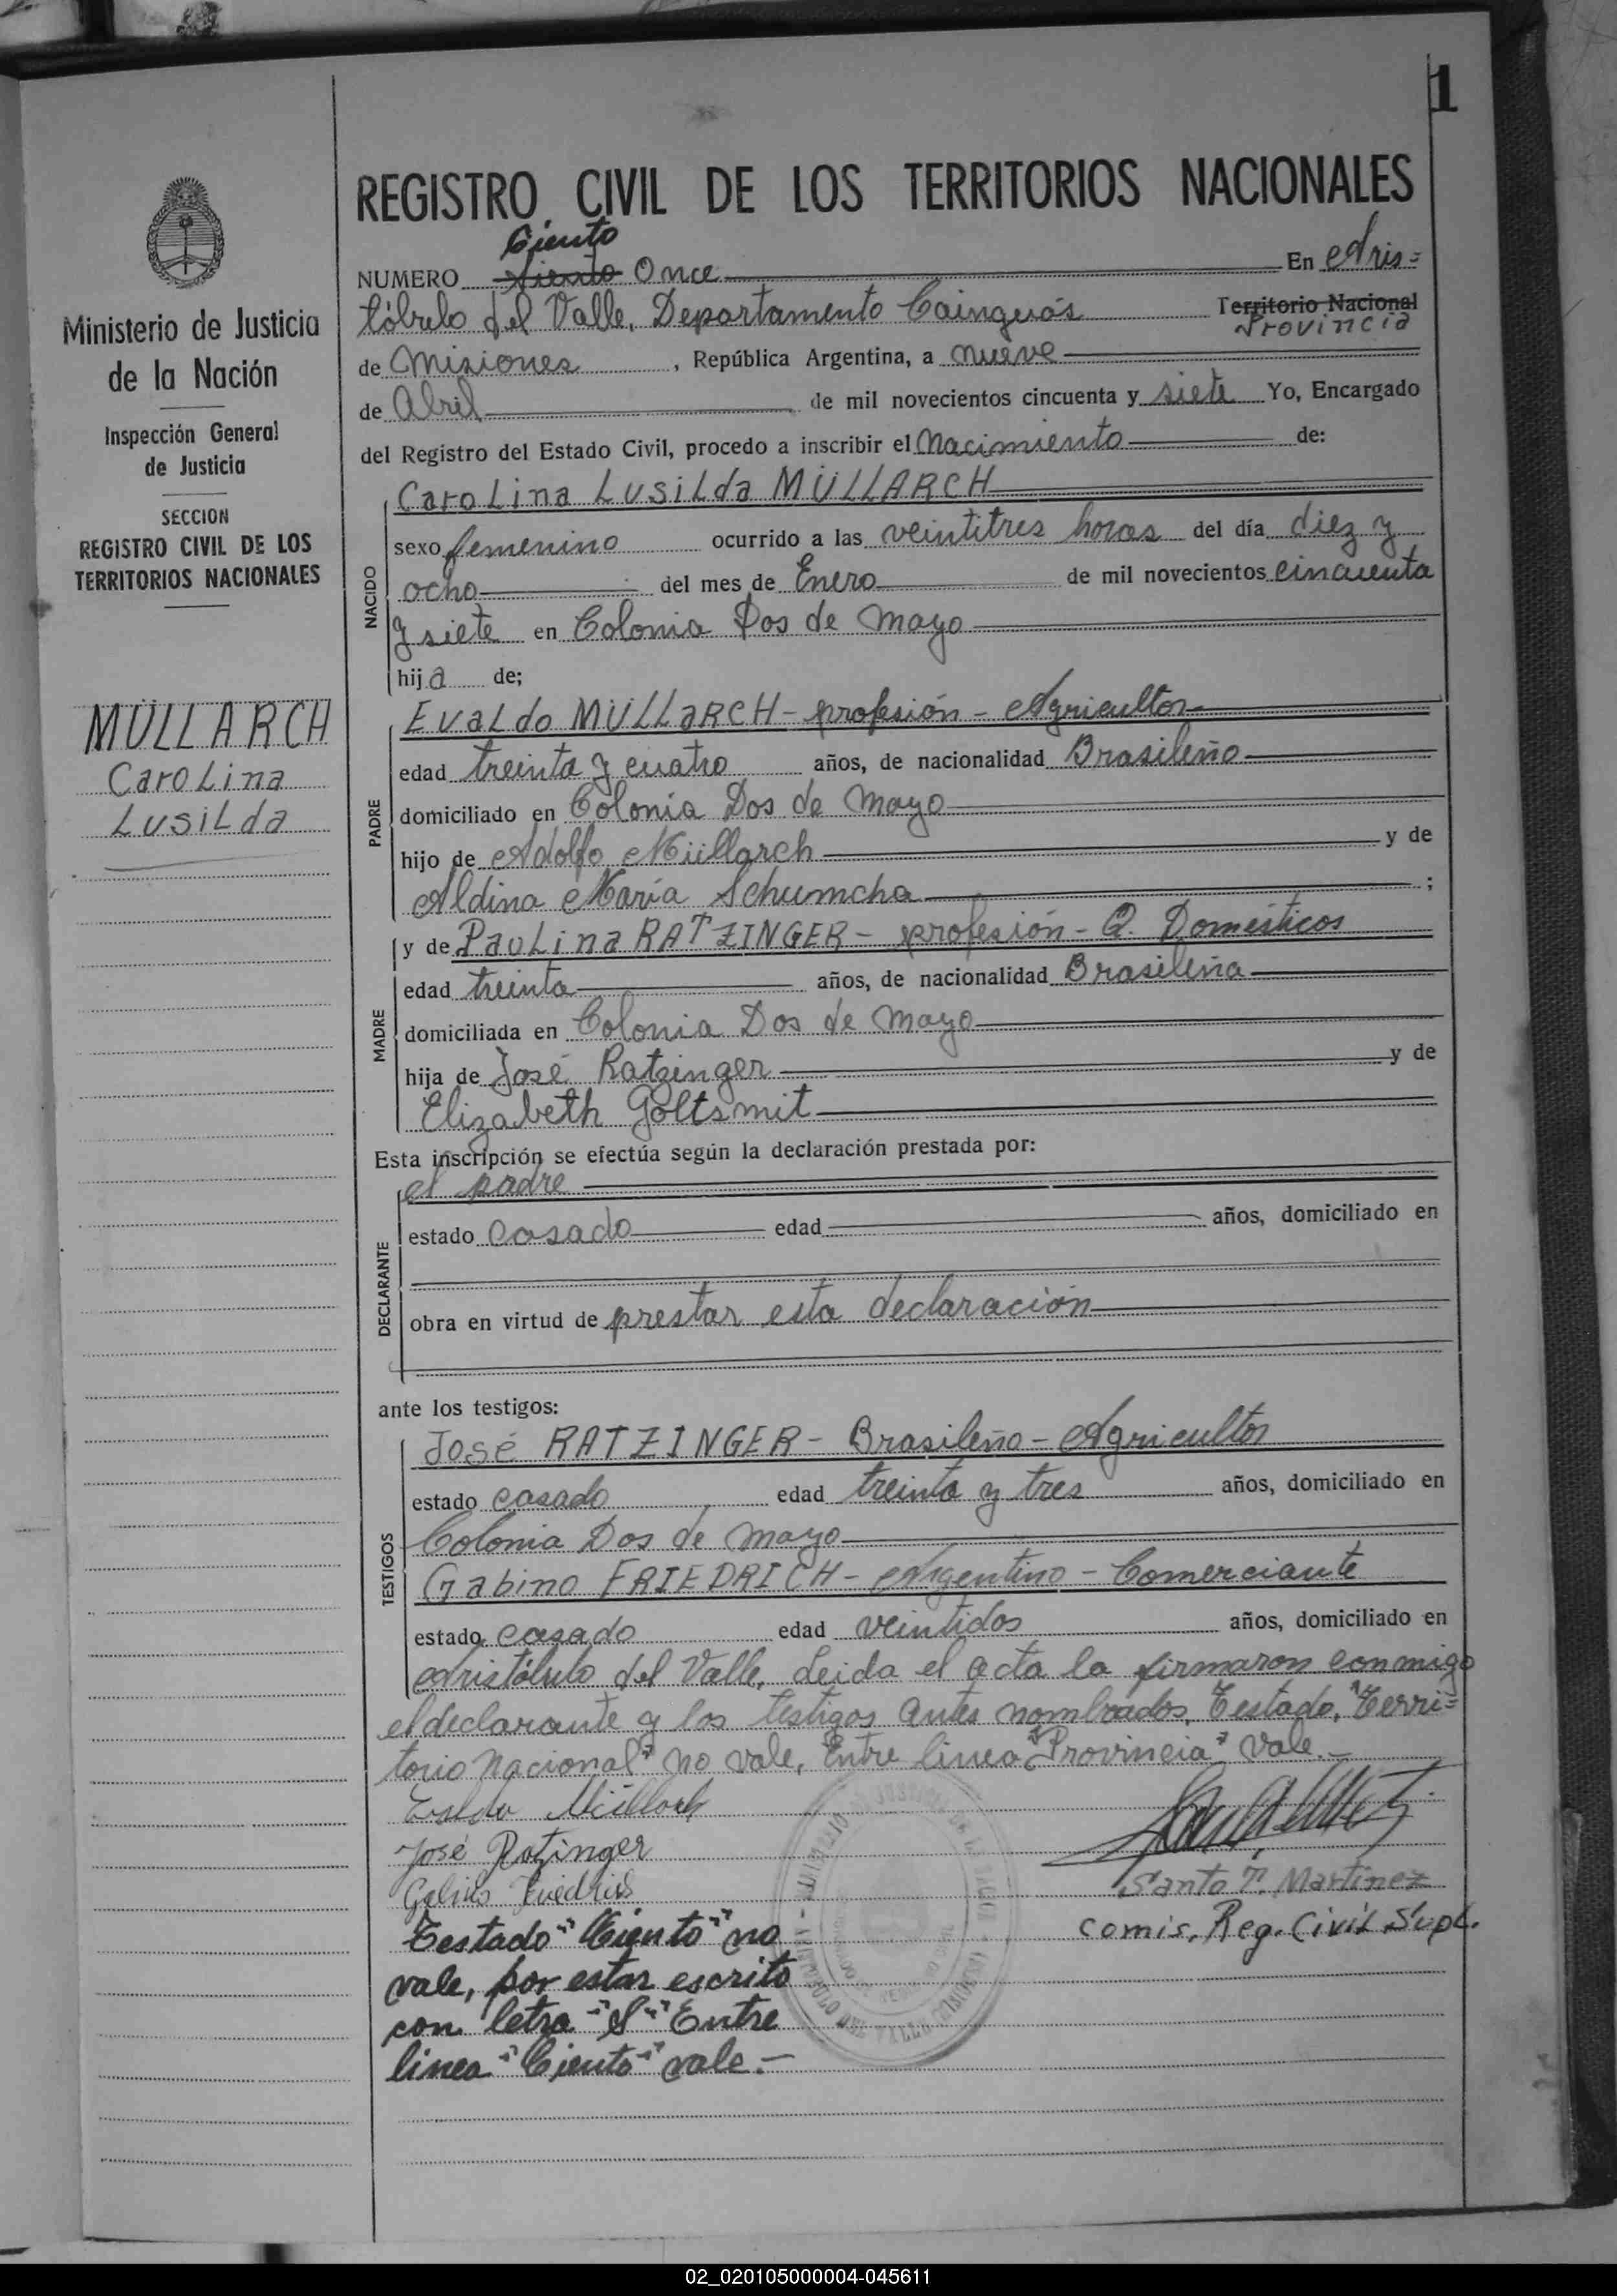 1
REGISTRO CIVIL DE LOS TERRITORIOS NACIONALES
Ciento
NUMERO Siento Once En Aris=
tóbulo del Valle, Departamento Cainguás Territorio Nacional
Provincia
de Misiones, República Argentina, a nueve
de Abril de mil novecientos cincuenta y siete Yo, Encargado
del Registro del Estado Civil, procedo a inscribir el Nacimiento de:
Carolina Lusilda MÜLLARCH
sexo femenino ocurrido a las veintitres horas del día diez y
ocho del mes de Enero de mil novecientos cincuenta
y siete en Colonia Dos de Mayo
hija de;
NACIDO
Evaldo MÜLLARCH - profesión - Agricultor
edad treinta y cuatro años, de nacionalidad Brasileño
domiciliado en Colonia Dos de Mayo
hijo de Adolfo Müllarch y de
Aldina María Schumcha ;
PADRE
y de Paulina RATZINGER - profesión - Q. Domésticos
edad treinta años, de nacionalidad Brasileña
domiciliada en Colonia Dos de Mayo
hija de José Ratzinger y de
Elizabeth Goltsmit
MADRE
Esta inscripción se efectúa según la declaración prestada por:
el padre
estado casado edad años, domiciliado en
obra en virtud de prestar esta declaración
DECLARANTE
ante los testigos:
José RATZINGER - Brasileño - Agricultor
estado casado edad treinta y tres años, domiciliado en
Colonia Dos de Mayo
Gabino FRIEDRICH - Argentino - Comerciante
estado casado edad veintidos años, domiciliado en
TESTIGOS
Aristóbulo del Valle, Leida el acta la firmaron conmigo
el declarante y los testigos antes nombrados. Testado, "Terri=
torio Nacional" no vale, Entre linea "Provincia" Vale.-
Evaldo Müllarch
José Ratzinger
Gabino Friedrich
Santo T. Martinez
comis. Reg. Civil Supl.
Testado "Ciento" no
vale, por estar escrito
con letra "S" Entre
linea "Ciento" vale.-
Ministerio de Justicia
de la Nación
Inspección General
de Justicia
SECCION
REGISTRO CIVIL DE LOS
TERRITORIOS NACIONALES
MÜLLARCH
Carolina
Lusilda
02_020105000004-045611